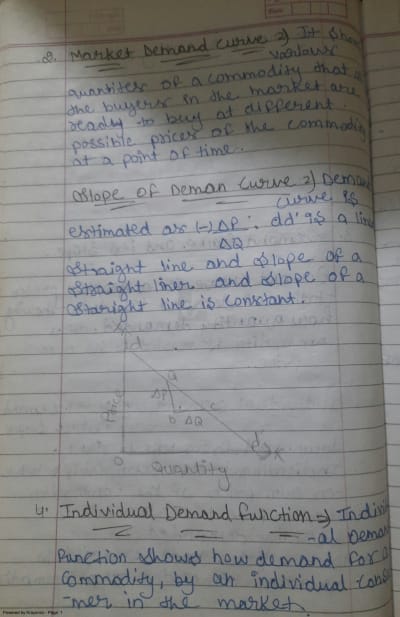 2. Market Demand Curve ⇒ It Show
various
quantites of a commodity that all
the buyers in the market are
ready to buy at different
possible prices of the commodity
at a point of time.
Slope of Deman Curve ⇒ Demand
Curve is
estimated as (-) ΔP/ΔQ . dd' is a line
Straight line and slope of a
Straight liner and slope of a
Staright line is constant.
Y
d
a
ΔP
Price
b ΔQ c
d'
O X
Quantity
4. Individual Demand function ⇒ Individu
-al Deman
Function shows how demand for a
Commodity, by an individual cons
-mer in the market.
Page: 1